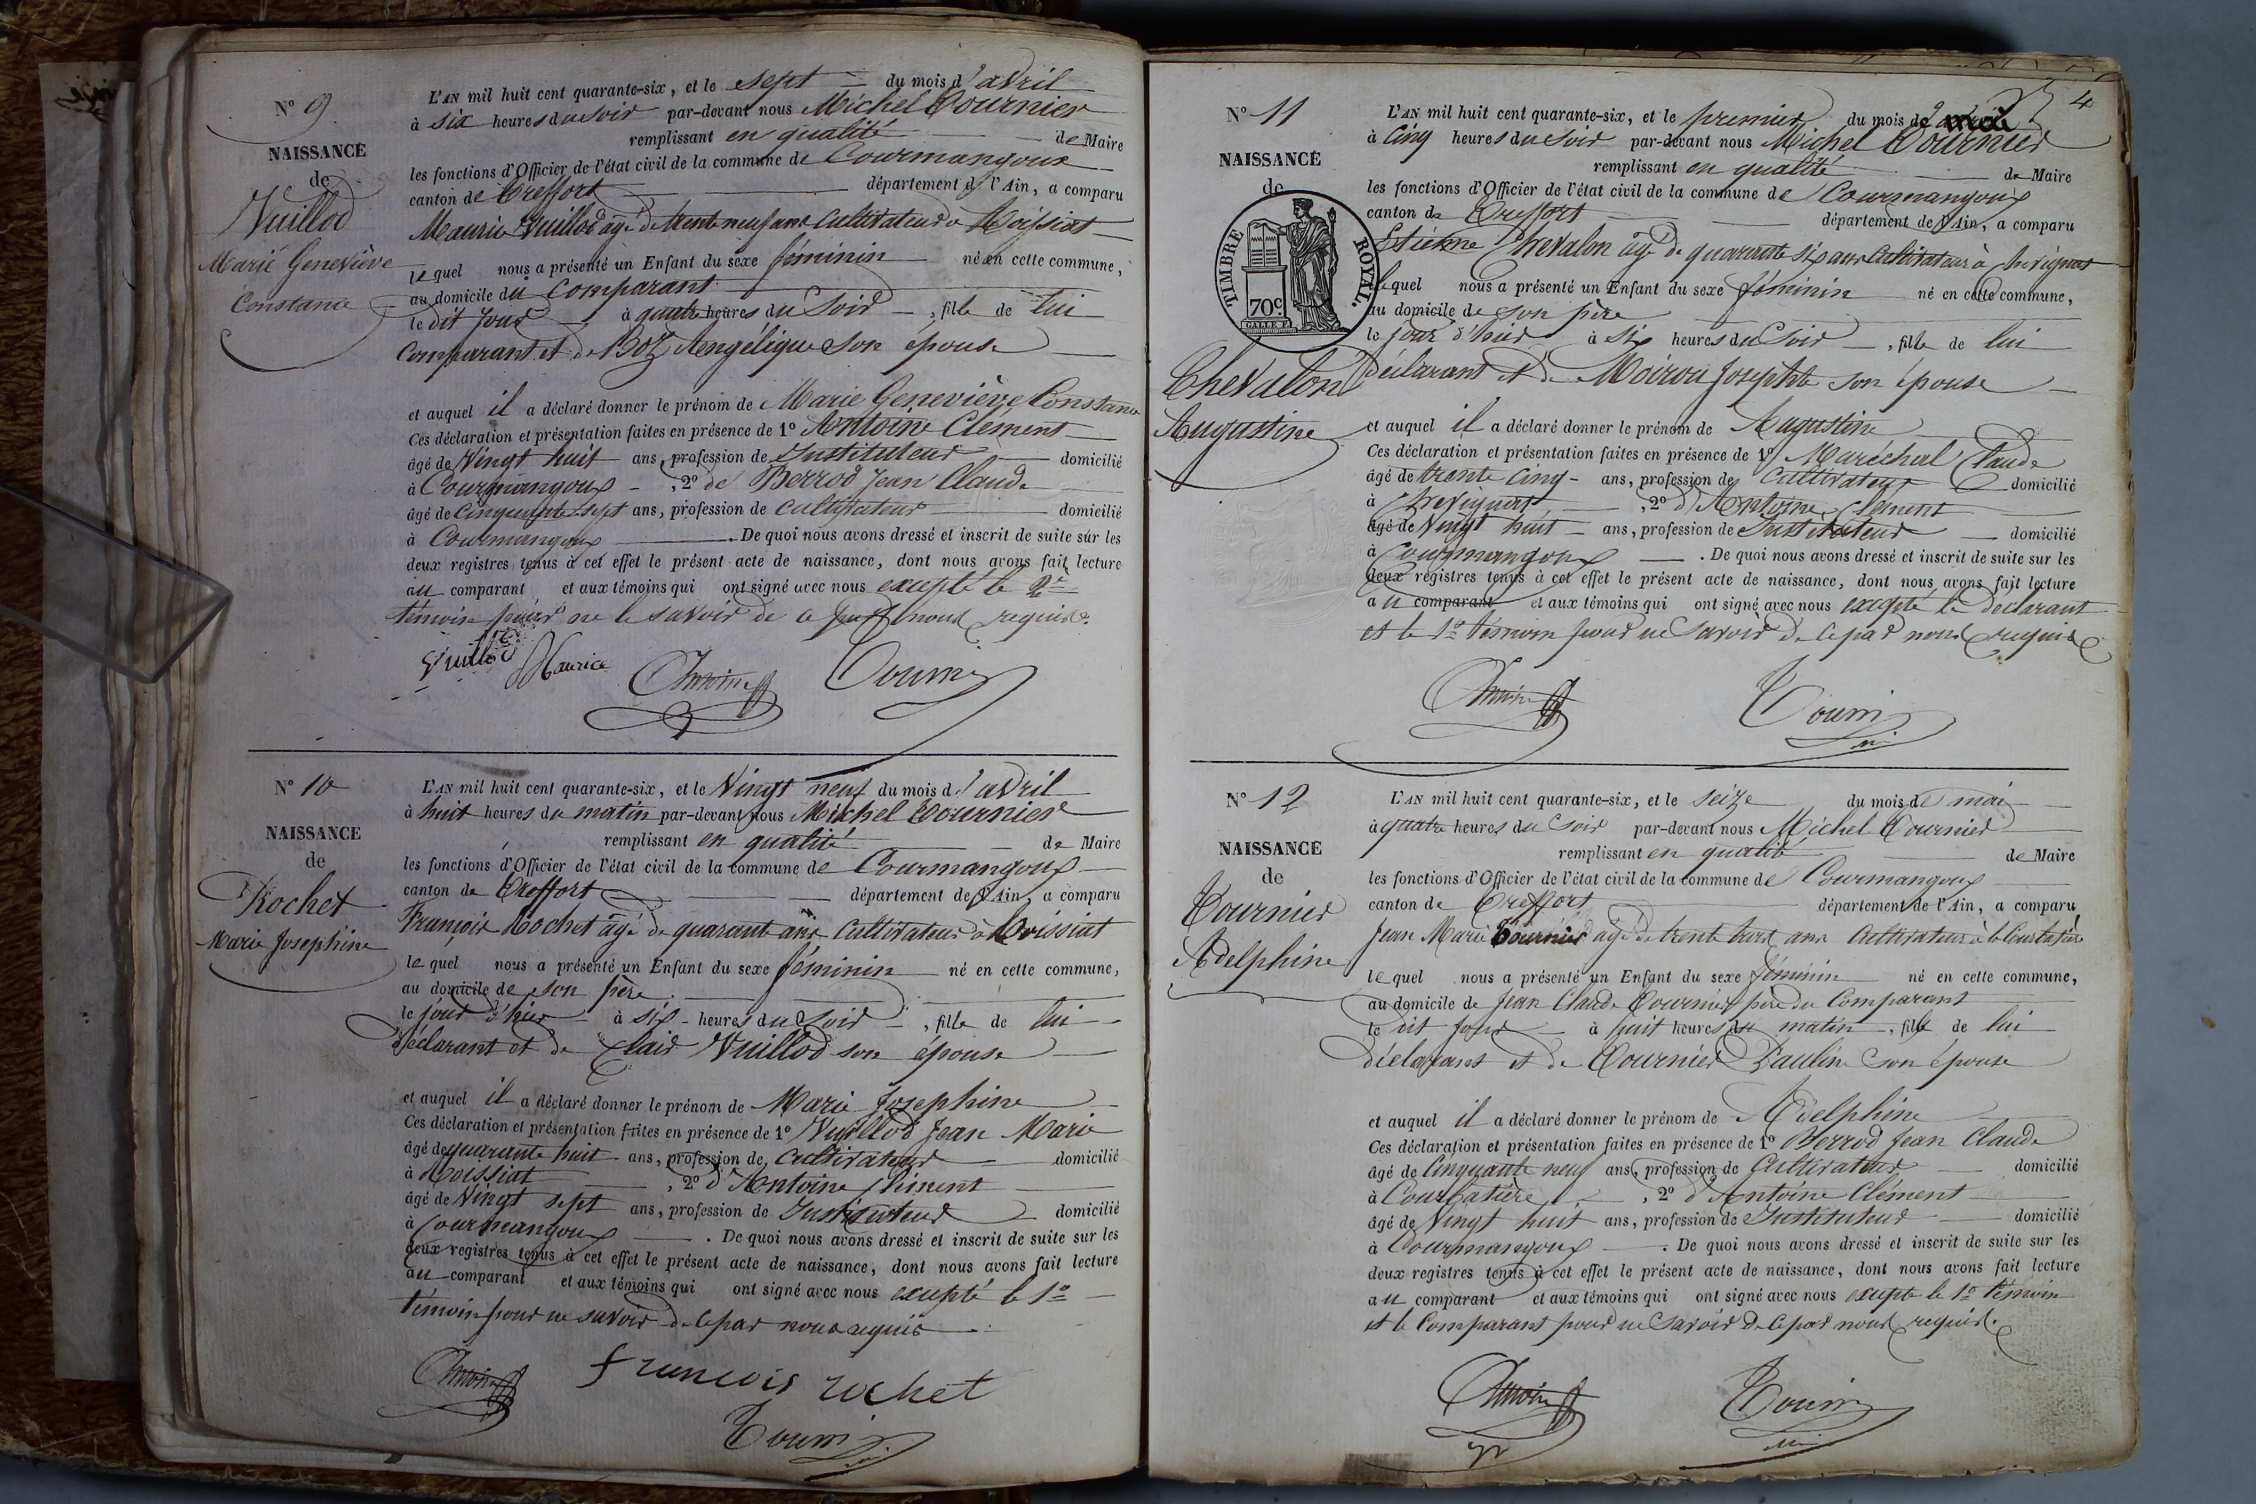 N° 9
NAISSANCE
de
Vuillod
Marie Geneviève
Constance
L'AN mil huit cent quarante-six, et le sept du mois d'avril
à six heures du soir par-devant nous Michel Tournier
remplissant en qualité de Maire
les fonctions d'Officier de l'état civil de la commune de Courmangoux
canton de Treffort département de l'Ain, a comparu
Maurice Vuillod âgé de trente neuf ans cultivateur à Roissiat
lequel nous a présenté un Enfant du sexe féminin né en cette commune,
au domicile du comparant
le dit jour à quatre heures du soir, fille de lui
comparant et de Boz Angélique son épouse
et auquel il a déclaré donner le prénom de Marie Geneviève Constance
Ces déclaration et présentation faites en présence de 1° Antoine Clément
âgé de vingt huit ans, profession de Instituteur domicilié
à Courmangoux, 2° de Berrod Jean Claude
âgé de cinquante sept ans, profession de cultivateur domicilié
à Courmangoux. De quoi nous avons dressé et inscrit de suite sur les
deux registres tenus à cet effet le présent acte de naissance, dont nous avons fait lecture
au comparant et aux témoins qui ont signé avec nous excepté le 2e
témoin pour ne le savoir de ce par nous requis.
Vuillod Maurice Antoine Tourni
N° 10
NAISSANCE
de
Rochet
Marie Josephine
L'AN mil huit cent quarante-six, et le vingt neuf du mois d'avril
à huit heures du matin par-devant nous Michel Tournier
remplissant en qualité de Maire
les fonctions d'Officier de l'état civil de la commune de Courmangoux
canton de Treffort département de l'Ain, a comparu
François Rochet âgé de quarante ans cultivateur à Roissiat
lequel nous a présenté un Enfant du sexe féminin né en cette commune,
au domicile de son père
le jour d'hier à six heures du soir, fille de lui
déclarant et de Clair Vuillod son épouse
et auquel il a déclaré donner le prénom de Marie Josephine
Ces déclaration et présentation faites en présence de 1° Vuillod Jean Marie
âgé de quarante huit ans, profession de cultivateur domicilié
à Roissiat, 2° d'Antoine Clément
âgé de vingt sept ans, profession de Instituteur domicilié
à Courmangoux. De quoi nous avons dressé et inscrit de suite sur les
deux registres tenus à cet effet le présent acte de naissance, dont nous avons fait lecture
au comparant et aux témoins qui ont signé avec nous excepté le 1er
témoin pour ne savoir de ce par nous requis
Antoine francois rochet
Tourni
4
N° 11
NAISSANCE
de
TIMBRE ROYAL.
70c
Chevalon
Augustine
L'AN mil huit cent quarante-six, et le premier du mois de mai
à cinq heures du soir par-devant nous Michel Tournier
remplissant en qualité de Maire
les fonctions d'Officier de l'état civil de la commune de Courmangoux
canton de Treffort département de l'Ain, a comparu
Etienne Chevalon âgé de quarante six ans cultivateur à Chevignat
lequel nous a présenté un Enfant du sexe féminin né en cette commune,
au domicile de son père
le jour d'hier à six heures du soir, fille de lui
déclarant et de Moirou Josephte son épouse
et auquel il a déclaré donner le prénom de Augustine
Ces déclaration et présentation faites en présence de 1° Maréchal Claude
âgé de trente cinq ans, profession de cultivateur domicilié
à Chevignat, 2° d'Antoine Clément
âgé de vingt huit ans, profession de Instituteur domicilié
à Courmangoux. De quoi nous avons dressé et inscrit de suite sur les
deux registres tenus à cet effet le présent acte de naissance, dont nous avons fait lecture
au comparant et aux témoins qui ont signé avec nous excepté le déclarant
et le 1er témoin pour ne savoir de ce par nous requis
Antoine Tourni
N° 12
NAISSANCE
de
Tournier
Adelphine
L'AN mil huit cent quarante-six, et le seize du mois de mai
à quatre heures du soir par-devant nous Michel Tournier
remplissant en qualité de Maire
les fonctions d'Officier de l'état civil de la commune de Courmangoux
canton de Treffort département de l'Ain, a comparu
Jean Marie Tournier âgé de trente huit ans cultivateur à la Courbatière
lequel nous a présenté un Enfant du sexe féminin né en cette commune,
au domicile de Jean Claude Tournier père du comparant
le dit jour à huit heures du matin, fille de lui
déclarant et de Tournier Pauline son épouse
et auquel il a déclaré donner le prénom de Adelphine
Ces déclaration et présentation faites en présence de 1° Berrod Jean Claude
âgé de cinquante neuf ans, profession de cultivateur domicilié
à Courbatière, 2° d'Antoine Clément
âgé de vingt huit ans, profession de Instituteur domicilié
à Courmangoux. De quoi nous avons dressé et inscrit de suite sur les
deux registres tenus à cet effet le présent acte de naissance, dont nous avons fait lecture
au comparant et aux témoins qui ont signé avec nous excepté le 1er témoin
et le comparant pour ne savoir de ce par nous requis.
Antoine Tourni